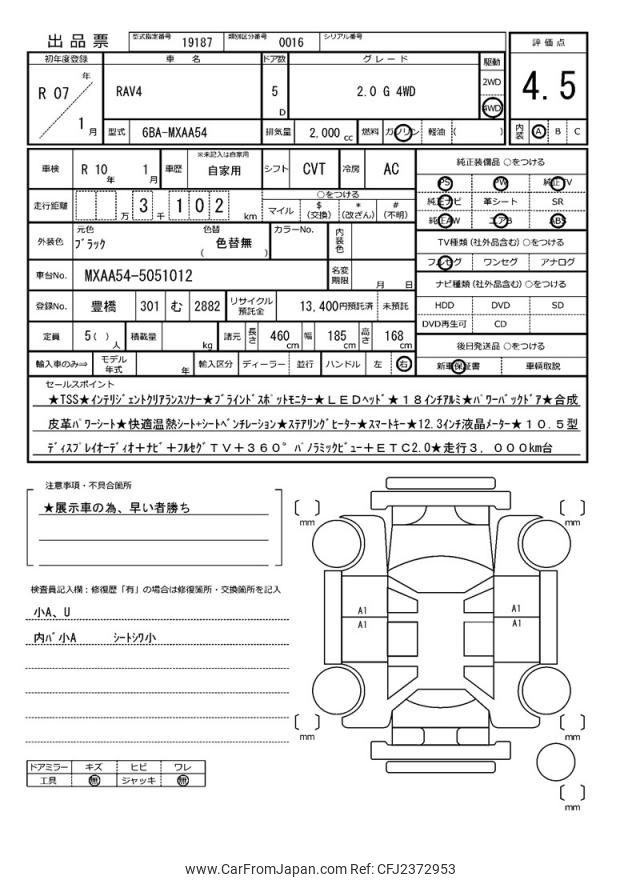 出品票 型式指定番号 19187 類別区分番号 0016 シリアル番号
評価点
4.5
内装 A B C
初年度登録 車名 ドア数 グレード 駆動
R 07 年 1 月
RAV4 5 D 2.0 G 4WD
2WD
4WD
型式 6BA-MXAA54 排気量 2,000 cc 燃料 ガソリン 軽油 ( )
車検 R 10 年 1 月 車歴 ※未記入は自家用 自家用 シフト CVT 冷房 AC
走行距離 万 3 千 1 0 2 km
○をつける
マイル $(交換) *(改ざん) #(不明)
外装色 元色 ブラック 色替 色替無 ( ) カラーNo. 内装色
車台No. MXAA54-5051012 名変期限 月 日
登録No. 豊橋 301 む 2882 リサイクル預託金 13,400円預託済 未預託
定員 5( )人 積載量 kg 諸元 長さ 460 cm 幅 185 cm 高さ 168 cm
輸入車のみ⇒ モデル年式 年 輸入区分 ディーラー 並行 ハンドル 左 右
純正装備品 ○をつける
PS PW 純正TV
純正ナビ 革シート SR
純正AW エアB ABS
TV種類 (社外品含む) ○をつける
フルセグ ワンセグ アナログ
ナビ種類 (社外品含む) ○をつける
HDD DVD SD
DVD再生可 CD
後日発送品 ○をつける
新車保証書 車輌取説
セールスポイント
★TSS★インテリジェントクリアランスソナー★ブラインドスポットモニター★LEDヘッド★18インチアルミ★パワーバックドア★合成
皮革パワーシート★快適温熱シート+シートベンチレーション★ステアリングヒーター★スマートキー★12.3インチ液晶メーター★10.5型
ディスプレイオーディオ+ナビ+フルセグTV+360°パノラミックビュー+ETC2.0★走行3,000km台
注意事項・不具合箇所
★展示車の為、早い者勝ち
検査員記入欄:修復歴「有」の場合は修復箇所・交換箇所を記入
小A、U
内バ小A シートシワ小
ドアミラー キズ ヒビ ワレ
工具 無 ジャッキ 無
mm
mm
A1 A1
A1 A1
mm
mm
mm
www.CarFromJapan.com Ref: CFJ2372953